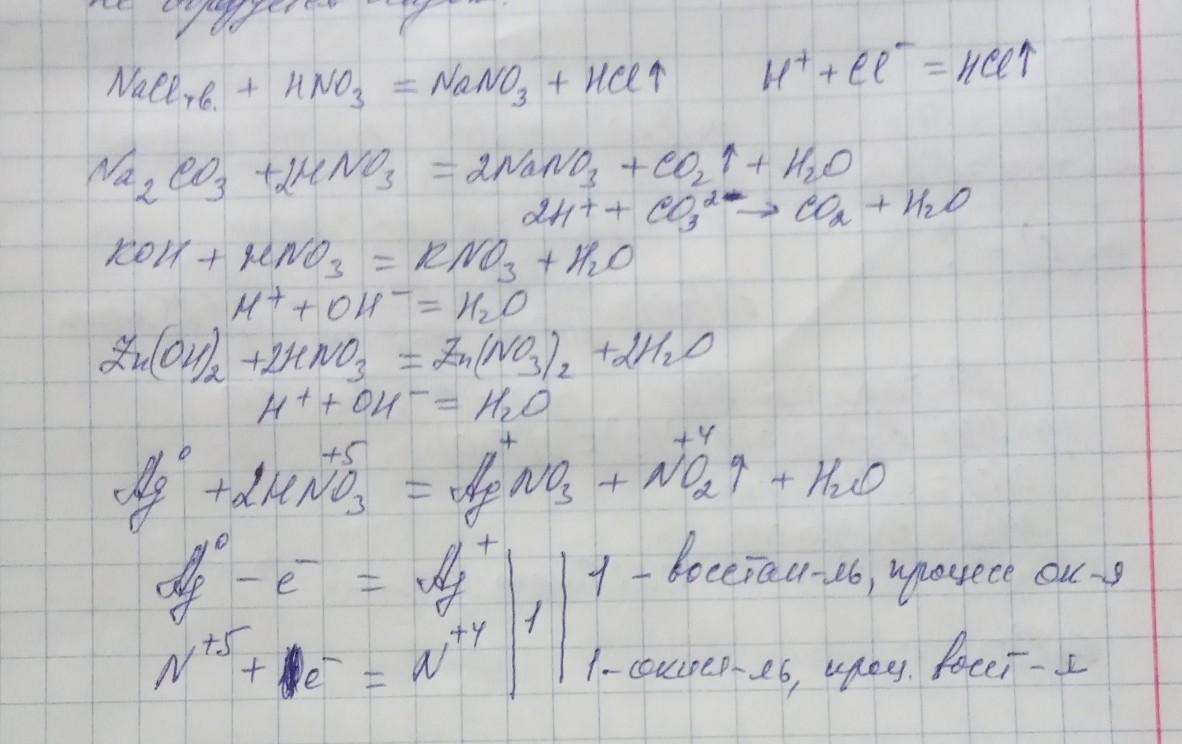 не образуется
NaCl тв. + HNO₃ = NaNO₃ + HCl↑ H⁺ + Cl⁻ = HCl↑
Na₂CO₃ + 2HNO₃ = 2NaNO₃ + CO₂↑ + H₂O
2H⁺ + CO₃²⁻ → CO₂ + H₂O
KOH + HNO₃ = KNO₃ + H₂O
H⁺ + OH⁻ = H₂O
Zn(OH)₂ + 2HNO₃ = Zn(NO₃)₂ + 2H₂O
H⁺ + OH⁻ = H₂O
Ag⁰ + 2HN⁺⁵O₃ = Ag⁺NO₃ + N⁺⁴O₂↑ + H₂O
Ag⁰ – e⁻ = Ag⁺ | 1 | 1 – восстан-ль, процесс ок-я
N⁺⁵ + e⁻ = N⁺⁴ | | 1 – окисл-ль, проц. восст-я